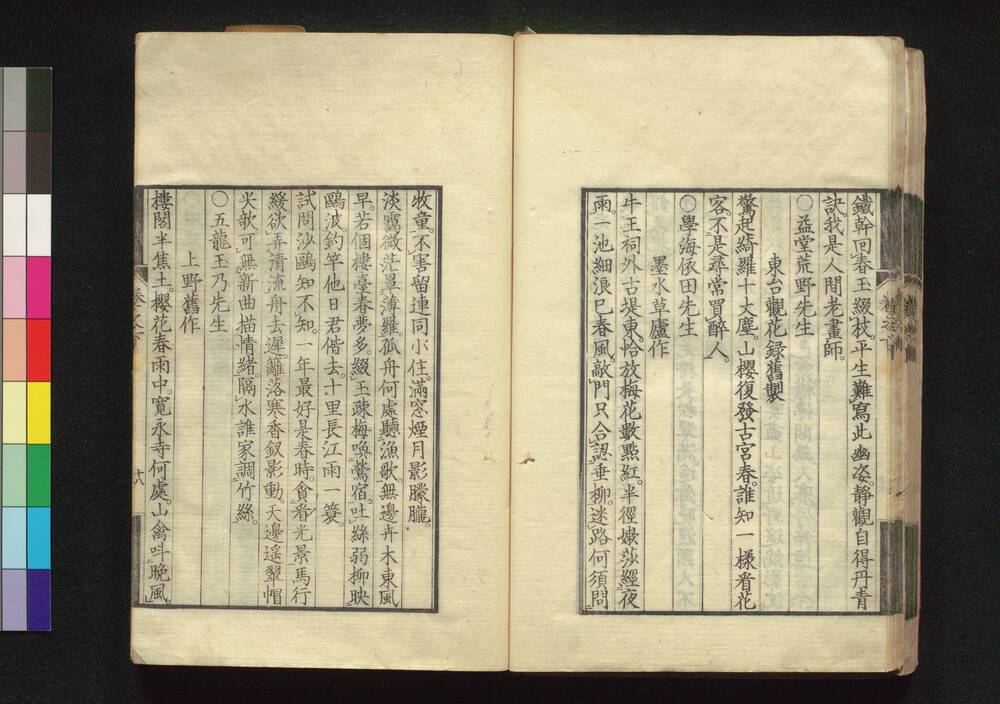 鐵幹回春玉綴枝。平生難寫此幽姿。靜觀自得丹青
訣。我是人間老畫師。
○益堂荒野先生
東台觀花録舊製
驚起綺羅十丈塵。山櫻復發古宮春。誰知一樣看花
客。不是尋常買醉人。
○學海依田先生
墨水草廬作
牛王祠外古堤東。恰放梅花數點紅。半徑嫩莎經夜
雨。一池細浪已春風。敲門只合認垂柳。迷路何須問
牧童。不害留連同小住。滿窓煙月影朦朧。
淡靄微茫罩薄羅。孤舟何處聽漁歌。無邊卉木東風
早。若個樓臺春夢多。綴玉疎梅喚鶯宿。吐絲弱柳映
鷗波。釣竿他日君偕去。十里長江雨一簑。
試問沙鷗知不知。一年最好是春時。貪看光景馬行
緩。欲弄清流舟去遲。籬落寒香釵影動。天邊遥翠帽
尖欹。可無新曲描情緒。隔水誰家調竹絲。
○五龍玉乃先生
上野舊作
樓閣半焦土。櫻花春雨中。寛永寺何處。山禽呌晩風。
十八